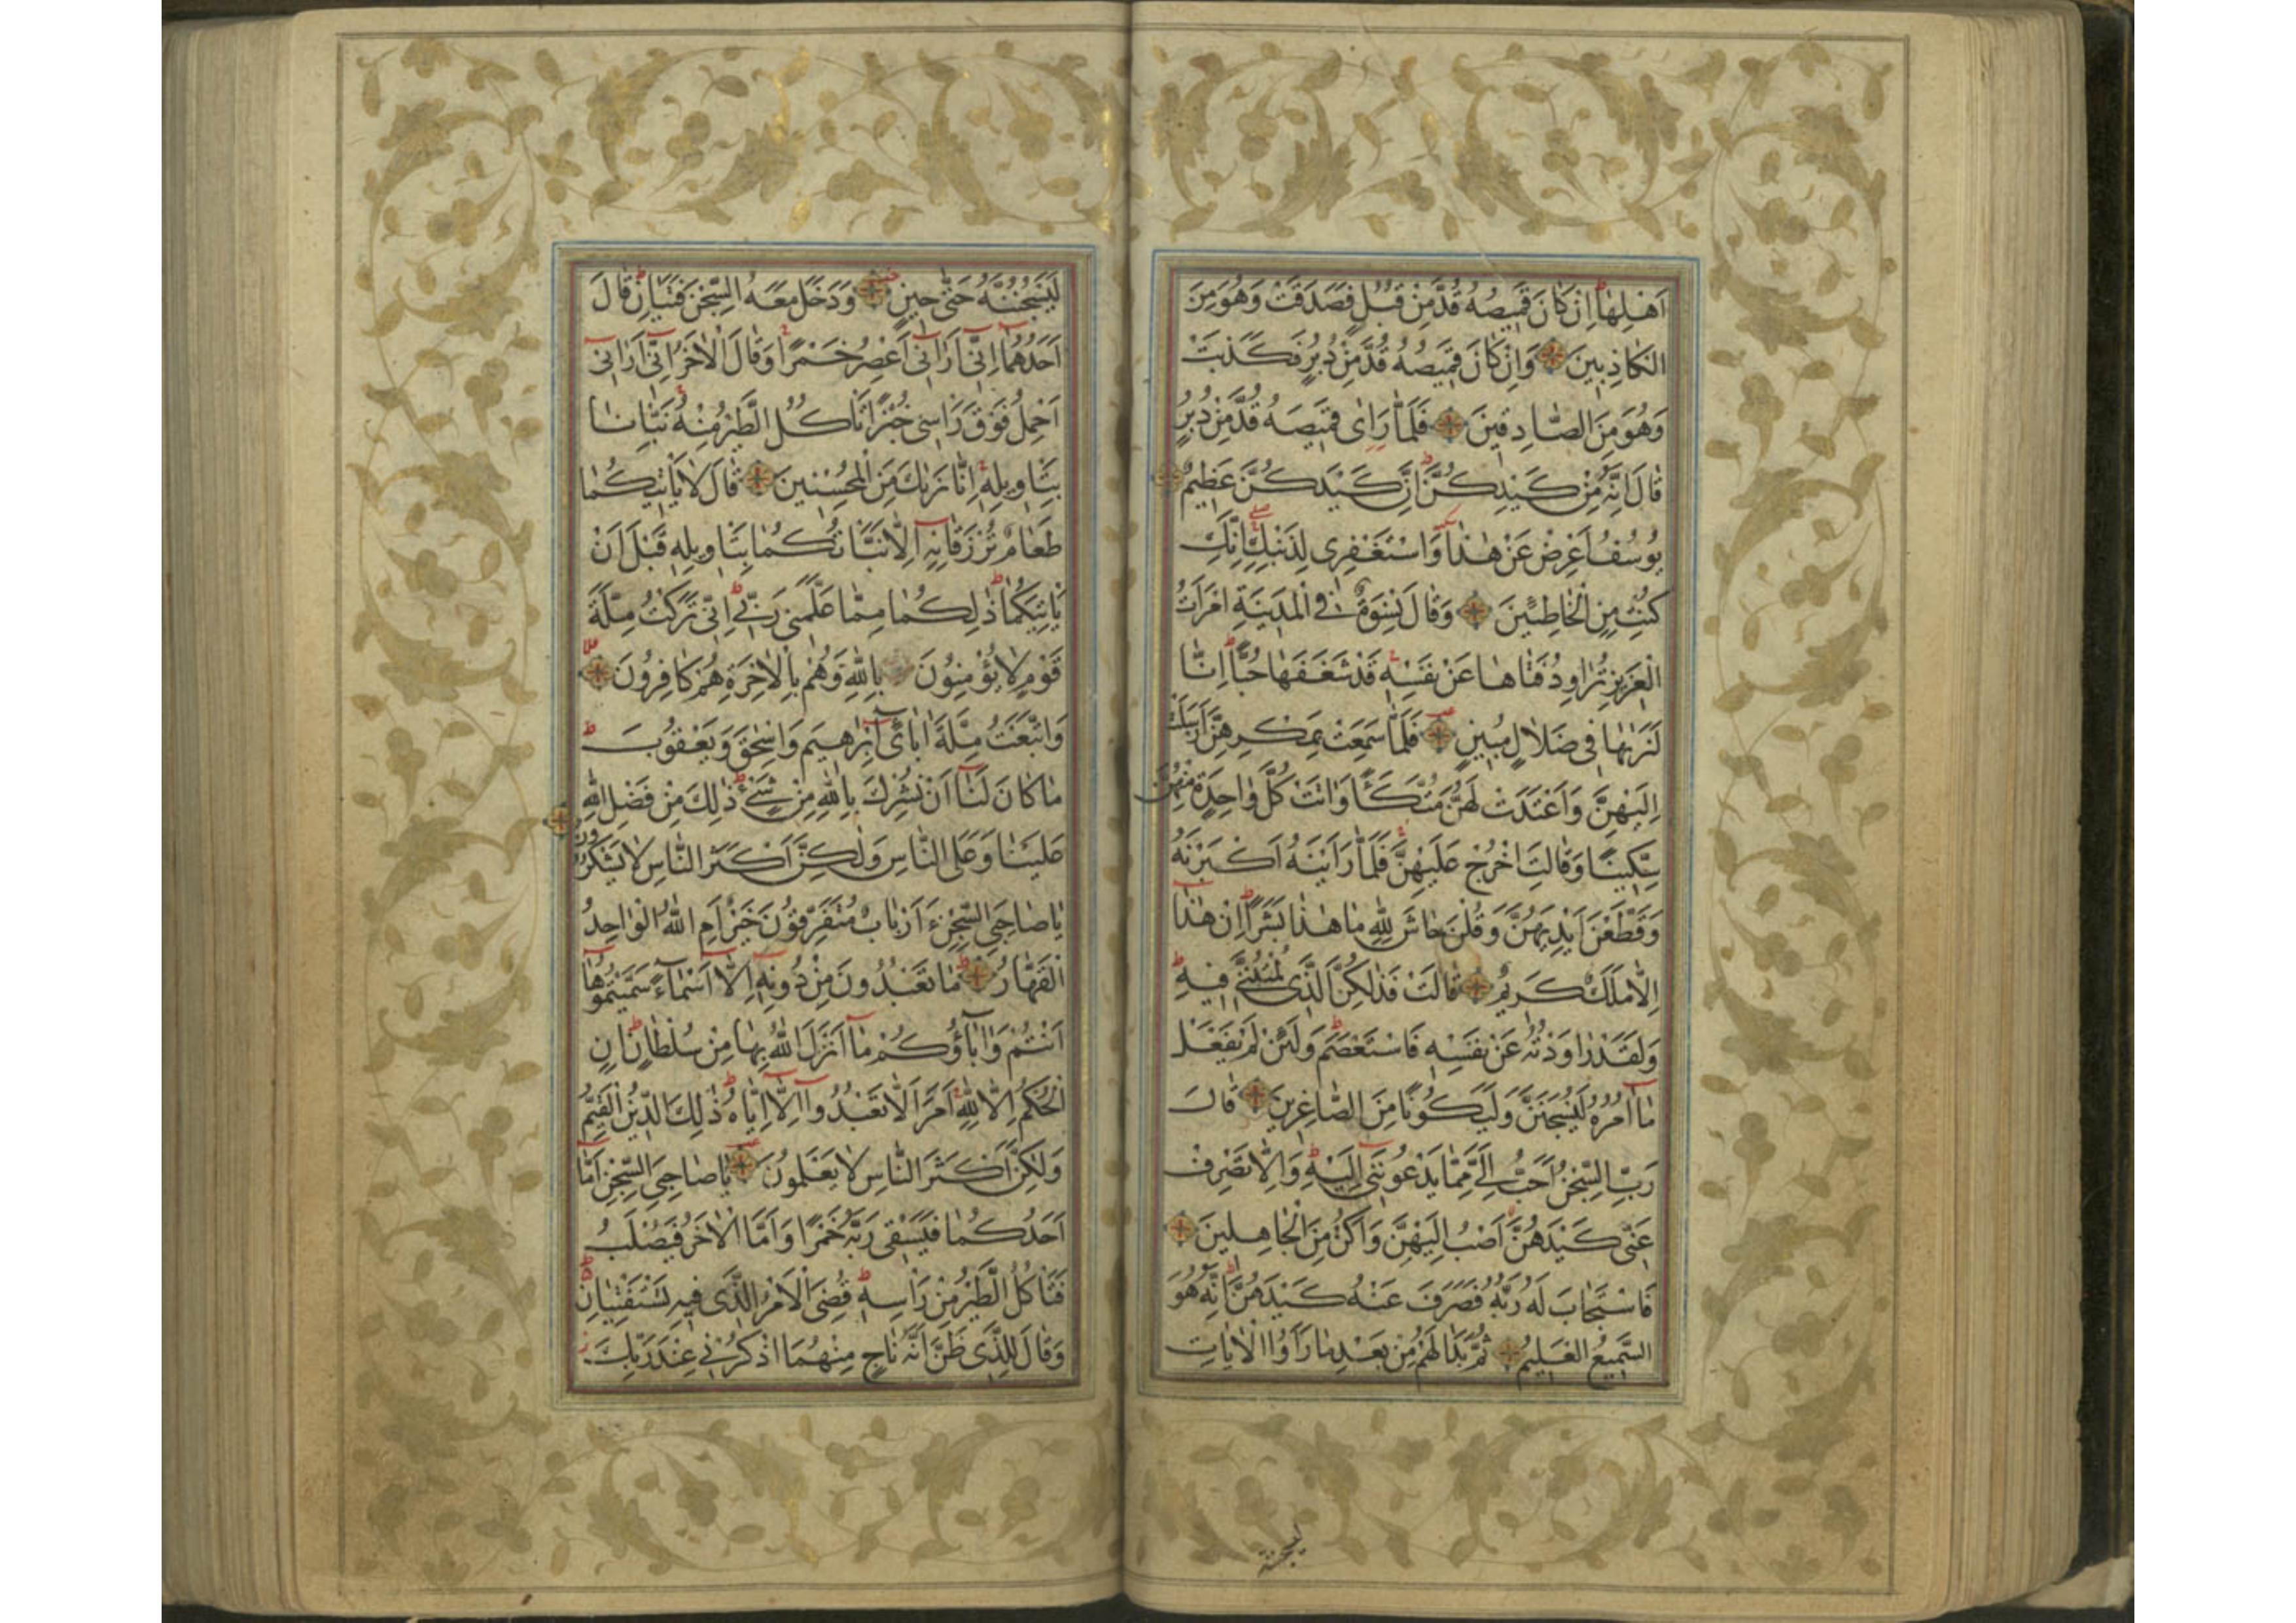 اَهْلِهٰا اِنْ كٰانَ قَمٖيصُهُ قُدَّ مِنْ قُبُلٍ فَصَدَقَتْ وَهُوَ مِنَ
الْكٰاذِبٖينَ وَاِنْ كٰانَ قَمٖيصُهُ قُدَّ مِنْ دُبُرٍ فَكَذَبَتْ
وَهُوَ مِنَ الصّٰادِقٖينَ فَلَمّٰا رَاٰى قَمٖيصَهُ قُدَّ مِنْ دُبُرٍ
قٰالَ اِنَّهُ مِنْ كَيْدِكُنَّ اِنَّ كَيْدَكُنَّ عَظٖيمٌ
يُوسُفُ اَعْرِضْ عَنْ هٰذٰا وَاسْتَغْفِرٖى لِذَنْبِكِ اِنَّكِ
كُنْتِ مِنَ الْخٰاطِئٖينَ وَقٰالَ نِسْوَةٌ فِى الْمَدٖينَةِ امْرَاَتُ
الْعَزٖيزِ تُرٰاوِدُ فَتٰاهٰا عَنْ نَفْسِهٖ قَدْ شَغَفَهٰا حُبًّا اِنّٰا
لَنَرٰيهٰا فٖى ضَلٰالٍ مُبٖينٍ فَلَمّٰا سَمِعَتْ بِمَكْرِهِنَّ اَرْسَلَتْ
اِلَيْهِنَّ وَاَعْتَدَتْ لَهُنَّ مُتَّكَـًٔا وَاٰتَتْ كُلَّ وٰاحِدَةٍ مِنْهُنَّ
سِكّٖينًا وَقٰالَتِ اخْرُجْ عَلَيْهِنَّ فَلَمّٰا رَاَيْنَهُ اَكْبَرْنَهُ
وَقَطَّعْنَ اَيْدِيَهُنَّ وَقُلْنَ حٰاشَ لِلّٰهِ مٰا هٰذٰا بَشَرًا اِنْ هٰذٰا
اِلّٰا مَلَكٌ كَرٖيمٌ قٰالَتْ فَذٰلِكُنَّ الَّذٖى لُمْتُنَّنٖى فٖيهِ
وَلَقَدْ رٰاوَدْتُهُ عَنْ نَفْسِهٖ فَاسْتَعْصَمَ وَلَئِنْ لَمْ يَفْعَلْ
مٰا اٰمُرُهُ لَيُسْجَنَنَّ وَلَيَكُونًا مِنَ الصّٰاغِرٖينَ قٰالَ
رَبِّ السِّجْنُ اَحَبُّ اِلَىَّ مِمّٰا يَدْعُونَنٖى اِلَيْهِ وَاِلّٰا تَصْرِفْ
عَنّٖى كَيْدَهُنَّ اَصْبُ اِلَيْهِنَّ وَاَكُنْ مِنَ الْجٰاهِلٖينَ
فَاسْتَجٰابَ لَهُ رَبُّهُ فَصَرَفَ عَنْهُ كَيْدَهُنَّ اِنَّهُ هُوَ
السَّمٖيعُ الْعَلٖيمُ ثُمَّ بَدٰا لَهُمْ مِنْ بَعْدِ مٰا رَاَوُا الْاٰيٰاتِ
ليسجننه
لَيَسْجُنُنَّهُ حَتّٰى حٖينٍ وَدَخَلَ مَعَهُ السِّجْنَ فَتَيٰانِ قٰالَ
اَحَدُهُمٰا اِنّٖى اَرٰانٖى اَعْصِرُ خَمْرًا وَقٰالَ الْاٰخَرُ اِنّٖى اَرٰانٖى
اَحْمِلُ فَوْقَ رَاْسٖى خُبْزًا تَاْكُلُ الطَّيْرُ مِنْهُ نَبِّئْنٰا
بِتَاْوٖيلِهٖ اِنّٰا نَرٰيكَ مِنَ الْمُحْسِنٖينَ قٰالَ لٰا يَاْتٖيكُمٰا
طَعٰامٌ تُرْزَقٰانِهٖ اِلّٰا نَبَّاْتُكُمٰا بِتَاْوٖيلِهٖ قَبْلَ اَنْ
يَاْتِيَكُمٰا ذٰلِكُمٰا مِمّٰا عَلَّمَنٖى رَبّٖى اِنّٖى تَرَكْتُ مِلَّةَ
قَوْمٍ لٰا يُؤْمِنُونَ بِاللّٰهِ وَهُمْ بِالْاٰخِرَةِ هُمْ كٰافِرُونَ
وَاتَّبَعْتُ مِلَّةَ اٰبٰائٖى اِبْرٰهٖيمَ وَاِسْحٰقَ وَيَعْقُوبَ
مٰا كٰانَ لَنٰا اَنْ نُشْرِكَ بِاللّٰهِ مِنْ شَىْءٍ ذٰلِكَ مِنْ فَضْلِ اللّٰهِ
عَلَيْنٰا وَعَلَى النّٰاسِ وَلٰكِنَّ اَكْثَرَ النّٰاسِ لٰا يَشْكُرُونَ
يٰا صٰاحِبَىِ السِّجْنِ ءَاَرْبٰابٌ مُتَفَرِّقُونَ خَيْرٌ اَمِ اللّٰهُ الْوٰاحِدُ
الْقَهّٰارُ مٰا تَعْبُدُونَ مِنْ دُونِهٖ اِلّٰا اَسْمٰاءً سَمَّيْتُمُوهٰا
اَنْتُمْ وَاٰبٰاؤُكُمْ مٰا اَنْزَلَ اللّٰهُ بِهٰا مِنْ سُلْطٰانٍ اِنِ
الْحُكْمُ اِلّٰا لِلّٰهِ اَمَرَ اَلّٰا تَعْبُدُوا اِلّٰا اِيّٰاهُ ذٰلِكَ الدّٖينُ الْقَيِّمُ
وَلٰكِنَّ اَكْثَرَ النّٰاسِ لٰا يَعْلَمُونَ يٰا صٰاحِبَىِ السِّجْنِ اَمّٰا
اَحَدُكُمٰا فَيَسْقٖى رَبَّهُ خَمْرًا وَاَمَّا الْاٰخَرُ فَيُصْلَبُ
فَتَاْكُلُ الطَّيْرُ مِنْ رَاْسِهٖ قُضِىَ الْاَمْرُ الَّذٖى فٖيهِ تَسْتَفْتِيٰانِ
وَقٰالَ لِلَّذٖى ظَنَّ اَنَّهُ نٰاجٍ مِنْهُمَا اذْكُرْنٖى عِنْدَ رَبِّكَ